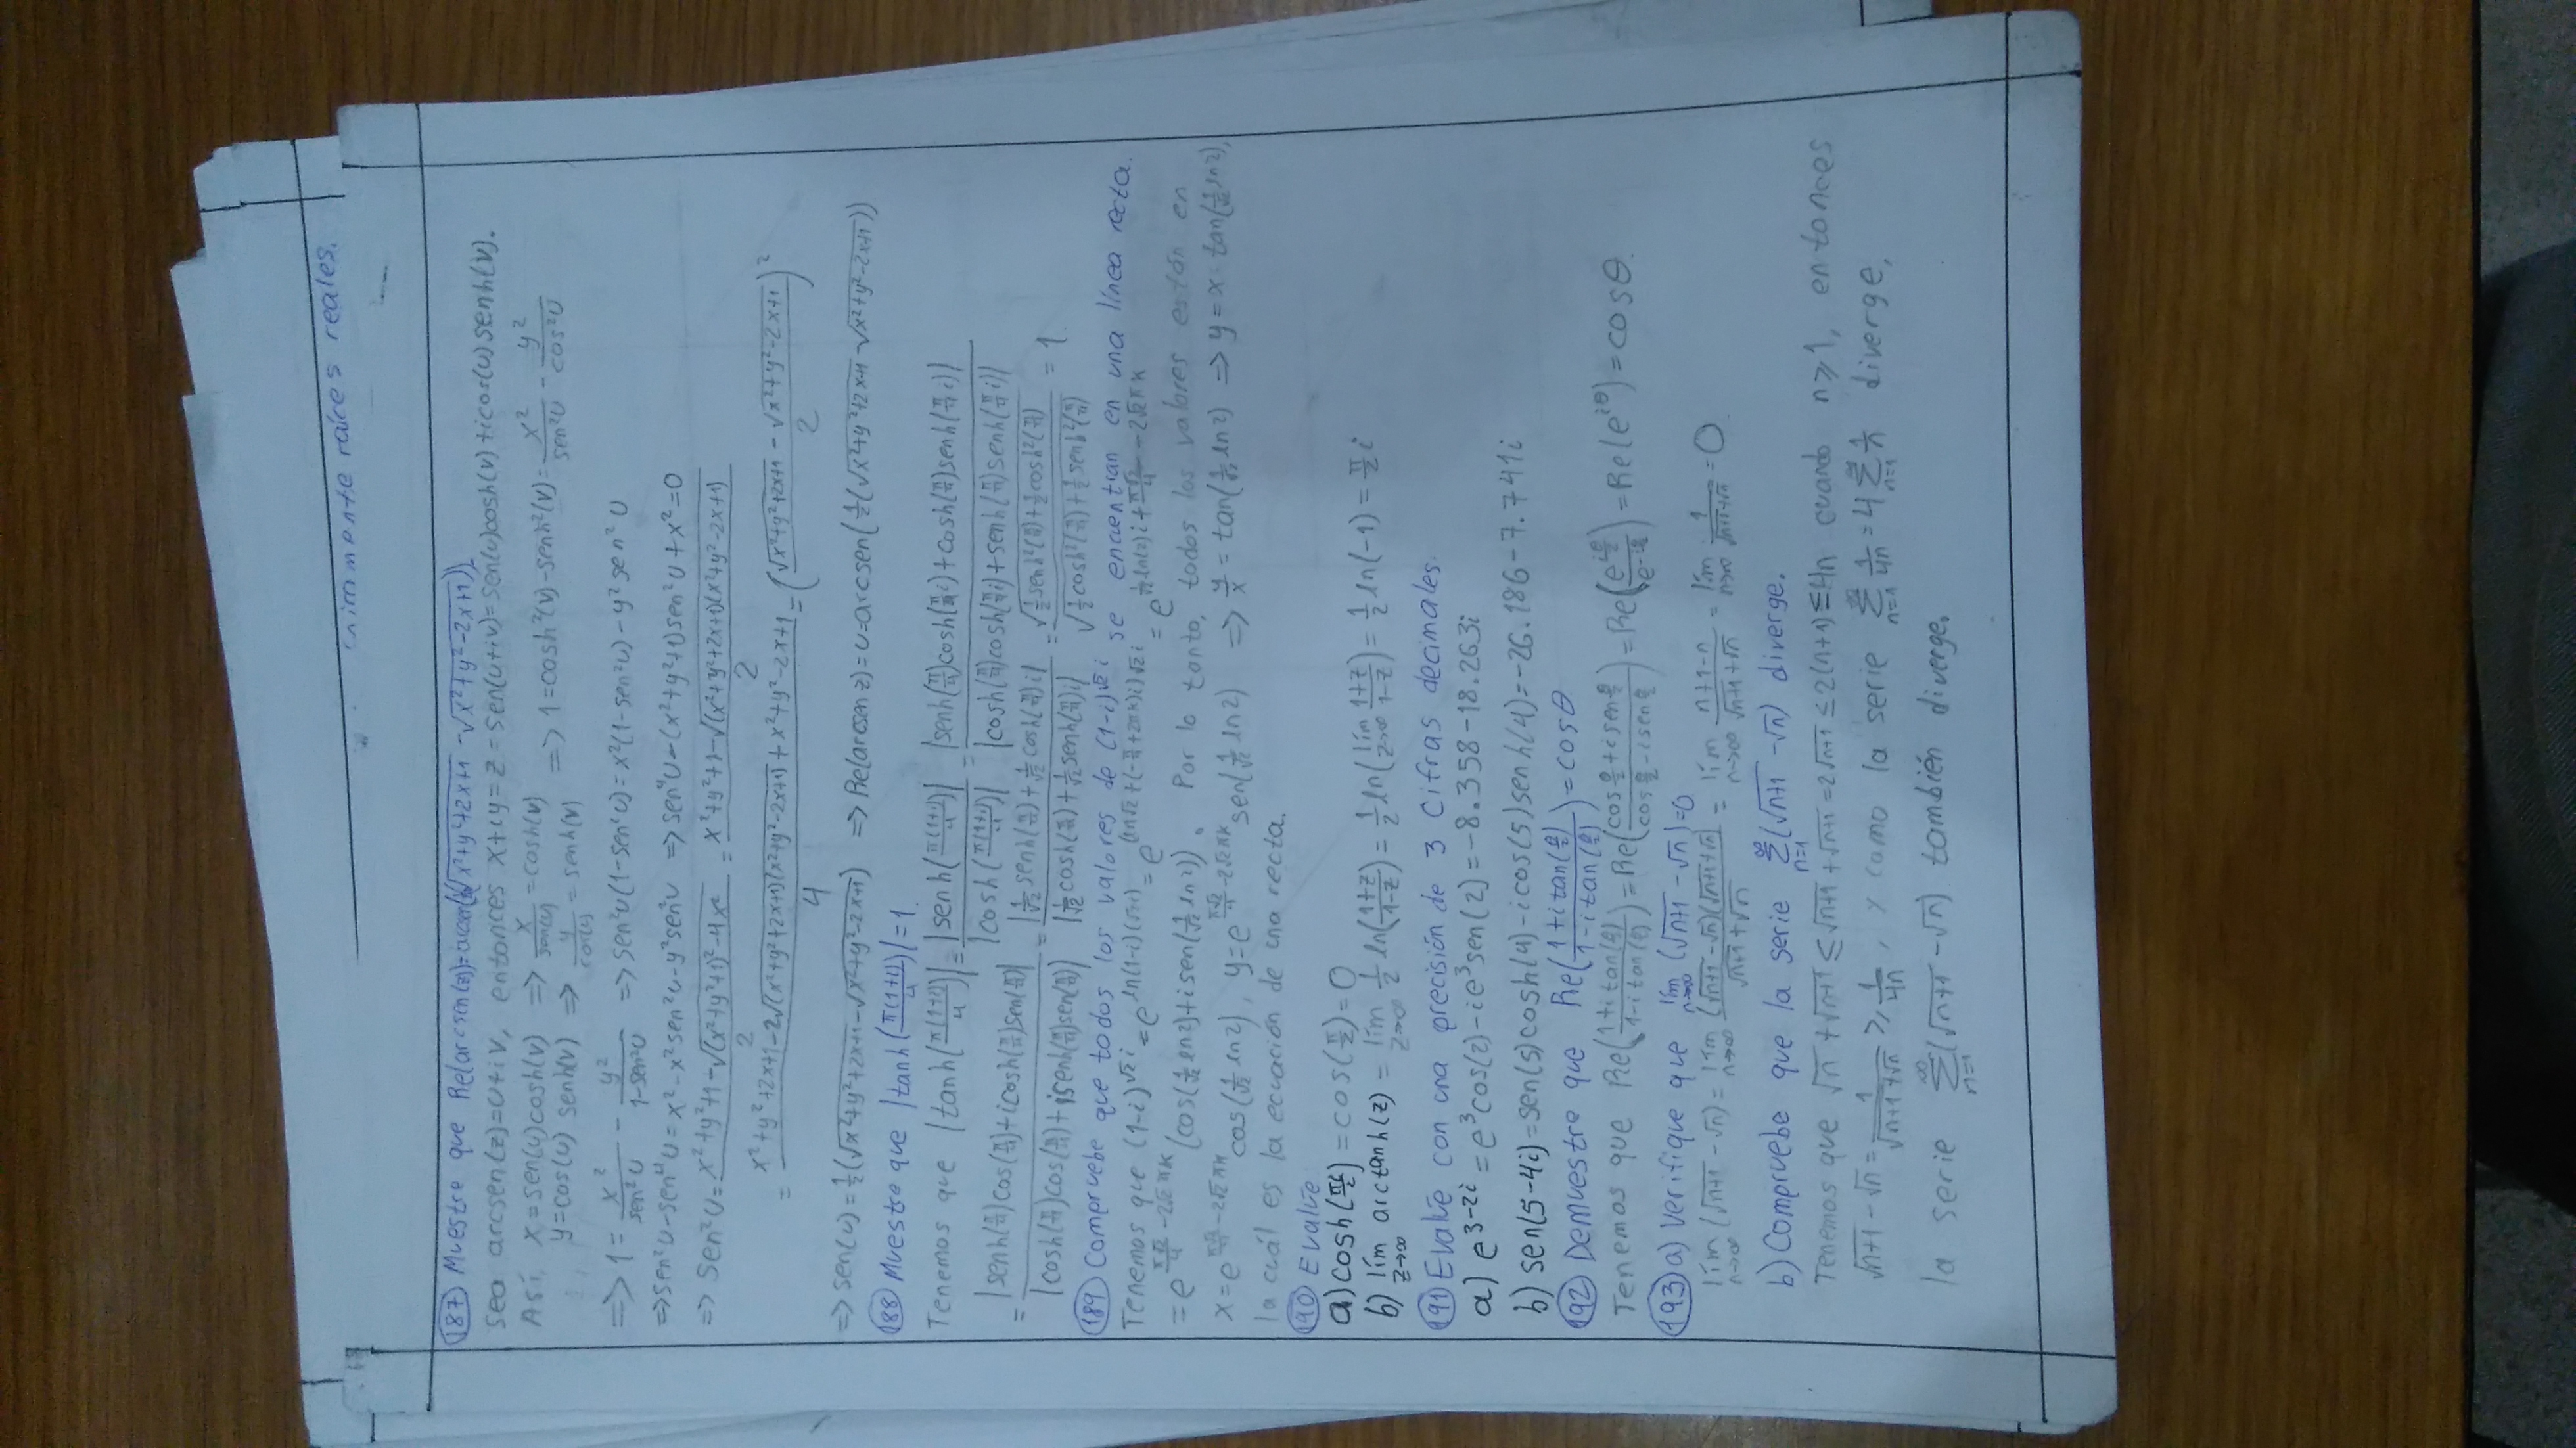 raíces reales.
187) Muestre que Re(arcsen(z))=arcsen(½(√(x²+y²+2x+1) -√(x²+y²-2x+1))).
Sea arcsen(z)=u+iv, entonces x+iy=z=sen(u+iv)=sen(u)cosh(v)+icos(u)senh(v).
Así, x=sen(u)cosh(v) => x/sen(u) =cosh(v)
y=cos(u) senh(v) => y/cos(u) = senh(v) => 1=cosh²(v)-senh²(v)= x²/sen²u - y²/cos²u
=> 1= x²/sen²u - y²/1-sen²u => sen²u(1-sen²u)=x²(1-sen²u)-y²sen²u
=>sen²u-sen⁴u=x²-x²sen²u-y²sen²u => sen⁴u-(x²+y²+1)sen²u+x²=0
=> sen²u= (x²+y²+1-√((x²+y²+1)²-4x²))/2 = (x²+y²+1-√((x²+y²+2x+1)(x²+y²-2x+1)))/2
= (x²+y²+2x+1-2√((x²+y²+2x+1)(x²+y²-2x+1))+x²+y²-2x+1)/4 = ((√(x²+y²+2x+1) - √(x²+y²-2x+1))/2)²
=> sen(u)=½(√(x²+y²+2x+1)-√(x²+y²-2x+1)) => Re(arcsen z)=u=arcsen(½(√(x²+y²+2x+1)-√(x²+y²-2x+1)))
188) Muestre que |tanh(π(1+i)/4)|=1.
Tenemos que |tanh(π(1+i)/4)|= |senh(π(1+i)/4)|/|cosh(π(1+i)/4)| = |senh(π/4)cosh(π/4 i)+cosh(π/4)senh(π/4 i)|/|cosh(π/4)cosh(π/4 i)+senh(π/4)senh(π/4 i)|
= |senh(π/4)cos(π/4)+icosh(π/4)sen(π/4)|/|cosh(π/4)cos(π/4)+isenh(π/4)sen(π/4)| = |1/√2 senh(π/4)+1/√2 cosh(π/4)i|/|1/√2 cosh(π/4)+1/√2 senh(π/4)i| = √(½senh²(π/4)+½cosh²(π/4))/√(½cosh²(π/4)+½senh²(π/4)) = 1.
189) Compruebe que todos los valores de (1-i)^(√2 i) se encuentran en una línea recta.
Tenemos que (1-i)^(√2 i) = e^(ln(1-i)(√2i)) = e^((ln√2+(-π/4+2πk)i)√2 i) = e^(1/√2 ln(2)i+π√2/4-2√2πk)
= e^(π√2/4-2√2πk) (cos(1/√2 ln2)+isen(1/√2 ln2)). Por lo tanto, todos los valores están en
x=e^(π√2/4-2√2πk) cos(1/√2 ln2), y=e^(π√2/4-2√2πk) sen(1/√2 ln2) => y/x = tan(1/√2 ln2) => y=x tan(1/√2 ln2),
la cuál es la ecuación de una recta.
190) Evalúe
a) cosh(πi/2) =cos(π/2)=0
b) lím z→∞ arctanh(z) = lím z→∞ 1/2 ln(1+z/1-z)= 1/2 ln(lím z→∞ 1+z/1-z)= 1/2 ln(-1) = π/2 i
191) Evalúe con una precisión de 3 cifras decimales.
a) e^(3-2i) =e³cos(2)-ie³sen(2)=-8.358-18.263i
b) sen(5-4i)=sen(5)cosh(4)-icos(5)senh(4)=-26.186-7.741i
192) Demuestre que Re(1+i tan(θ/2)/1-i tan(θ/2))=cosθ
Tenemos que Re(1+i tan(θ/2)/1-i tan(θ/2))=Re(cos θ/2+isen θ/2/cos θ/2-isen θ/2)=Re(e^(iθ/2)/e^(-iθ/2))=Re(e^(iθ))=cosθ.
193) a) Verifique que lím n→∞ (√(n+1)-√n)=0
lím n→∞ (√(n+1)-√n)= lím n→∞ (√(n+1)-√n)(√(n+1)+√n)/√(n+1)+√n = lím n→∞ n+1-n/√(n+1)+√n = lím n→∞ 1/√(n+1)+√n =0
b) Compruebe que la serie ∞Σn=1 (√(n+1)-√n) diverge.
Tenemos que √n+√(n+1)≤√(n+1)+√(n+1)=2√(n+1)≤2(n+1)≤4n cuando n≥1, entonces
√(n+1)-√n= 1/√(n+1)+√n ≥ 1/4n, y como la serie ∞Σn=1 1/4n =4 ∞Σn=1 1/n diverge,
la serie ∞Σn=1 (√(n+1)-√n) también diverge.